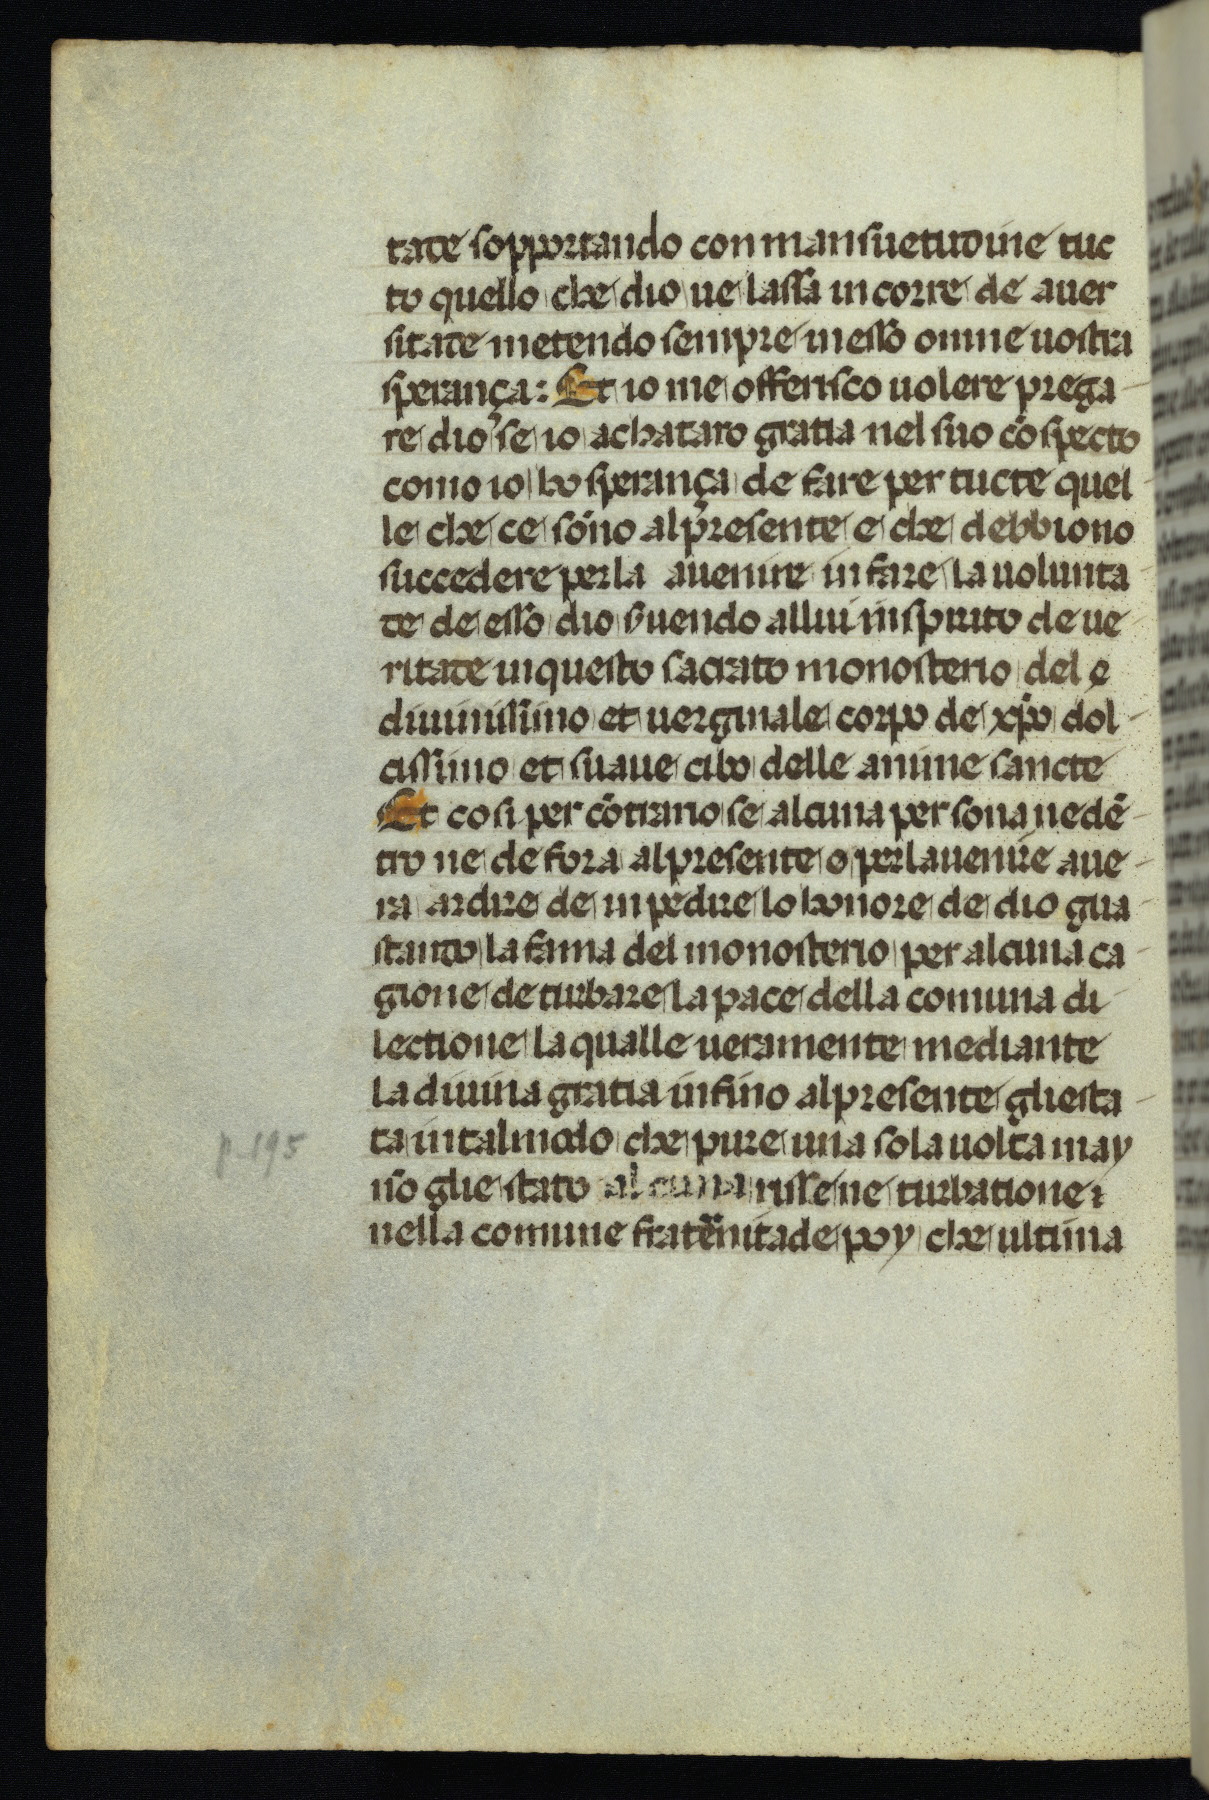 tate sopportando con mansuetudine tuc
to quello che dio ue lassa in corre de auer
sitate metendo sempre in esso onnne uostra
sperança: Et io me offerisco uolere prega-
re dio se io achataro gratia nel suo cō specto
como io ho sperança de fare per tucte quel-
le che ce sōno al presente e che debbiono
succedere per la auenire in fare la uolunta
te de esso dio s̄uendo allui in spirito de ue-
ritate in questo sacrato monosterio del
diuinissimo et uerginale corpo de xp̄o dol-
cissimo et suaue cibo delle anime sancte
Et cosi per cōtrario se alcuna persona ne dē-
tro ne de fora al presente o per lauenire aue-
ra ardire de inpedire lo honore de dio gua-
stando la fama del monosterio per alcuna ca-
gione de turbare la pace della comuna di-
lectione la qualle ueramente mediante
la diuina gratia in fino al presente gliesta-
ta in tal modo che pure una sola uolta may
p. 195
nō glie stato alcuna risse ne turbatione
nella comune fraternitade poy che ultima